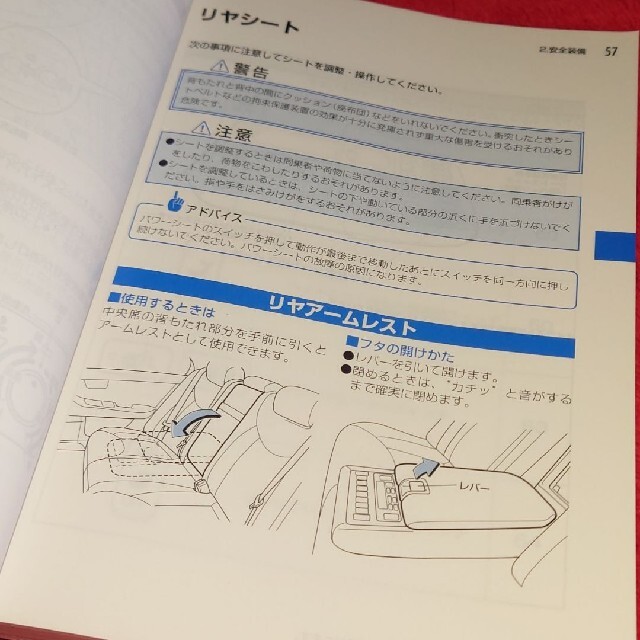 リヤシート
2.安全装備 57
次の事項に注意してシートを調整・操作してください。
警告
背もたれと背中の間にクッション(座布団)などをいれないでください。衝突したときシー
トベルトなどの拘束保護装置の効果が十分に発揮されず重大な傷害を受けるおそれがあり
危険です。
注意
●シートを調整するときは同乗者や荷物に当てないように注意してください。同乗者がけが
をしたり、荷物をこわしたりするおそれがあります。
●シートを調整しているときは、シートの下や動いている部分の近くに手を近づけないでく
ださい。指や手をはさみけがをするおそれがあります。
アドバイス
パワーシートのスイッチを押して動作が最後まで移動したあとにスイッチを同一方向に押し
続けないでください。パワーシートの故障の原因になります。
リヤアームレスト
■使用するときは
中央席の背もたれ部分を手前に引くと
アームレストとして使用できます。
■フタの開けかた
●レバーを引いて開けます。
●閉めるときは、"カチッ"と音がする
まで確実に閉めます。
レバー